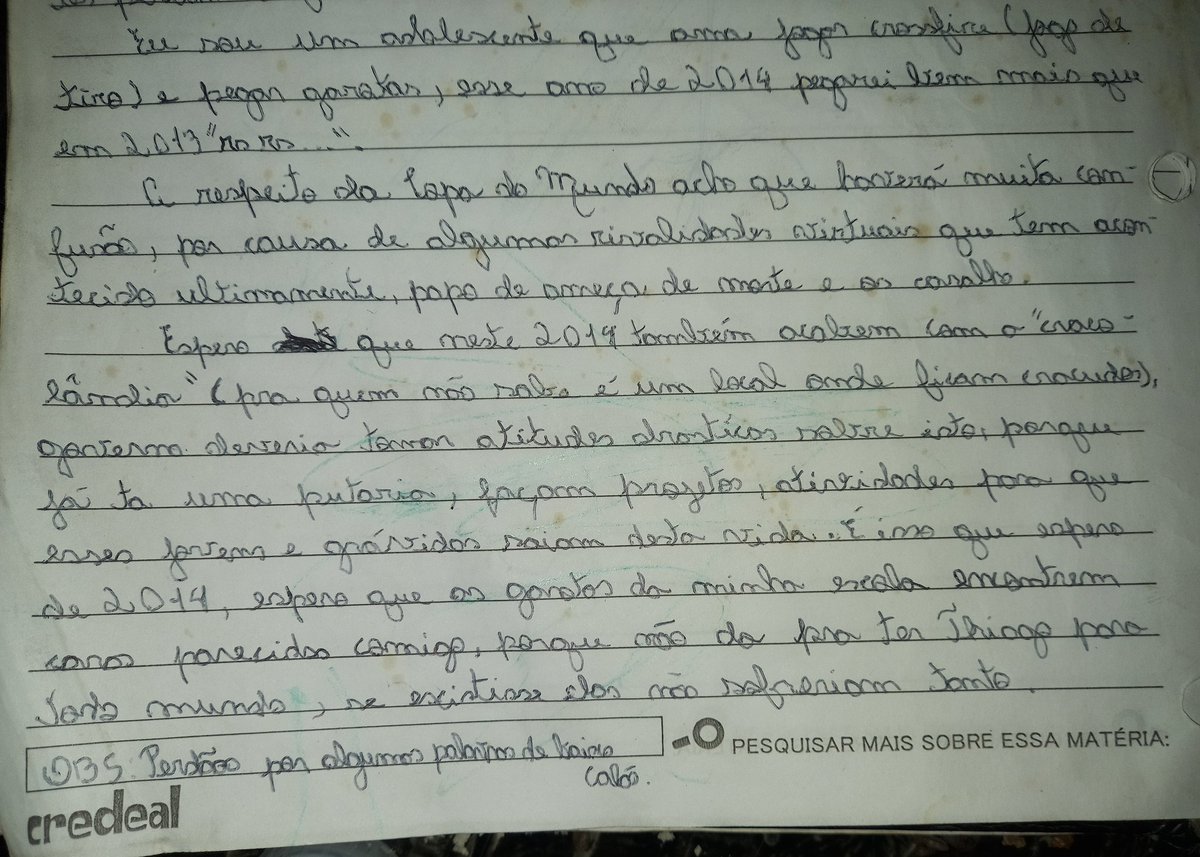 Eu sou um adolescente que ama jogar crossfire (jogo de
tiro) e pegar garotas, esse ano de 2014 pegarei bem mais que
em 2013 "rs rs....".
A respeito da Copa do Mundo acho que haverá muita con-
fusão, por causa de algumas rivalidades virtuais que tem acon-
tecido ultimamente, papo de ameça de morte e os caralho.
Espero que neste 2014 também acabem com a "craco-
lândia" (pra quem não sabe é um local onde ficam cracudos),
governo deveria tomar atitudes drasticas sobre isto, porque
já ta uma putaria, façam projetos, atividades para que
esses jovens e grávidas saiam desta vida. É isso que espero
de 2014, espero que as garotas da minha escola encontrem
caras parecidos comigo, porque não da pra ter Thiago para
todo mundo, se existisse elas não sofreriam tanto.
OBS. Perdão por algumas palavras de baixo
calão.
PESQUISAR MAIS SOBRE ESSA MATÉRIA:
credeal